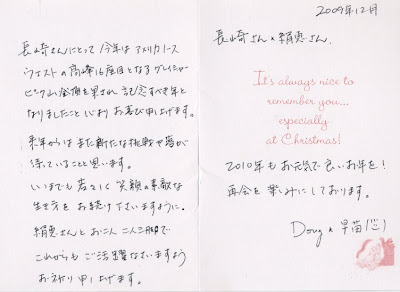 長崎さんにとって今年はアメリカノース
ウェストの高峰16座目となるグレイシャー
ピーク山登頂を果され 記念すべき年と
なりましたこと心よりお喜び申し上げます。
来年からはまた新たな挑戦や夢が
待っていることと思います。
いつまでも若々しく笑顔の素敵な
生き方をお続け下さいますように。
絹恵さんとお二人二人三脚で
これからもご活躍なさいますよう
お祈り申し上げます。
2009年12月
長崎さん & 絹恵さん、
It's always nice to
remember you...
especially
at Christmas!
2010年もお元気で良いお年を!
再会を楽しみにしております。
Doug & 早苗